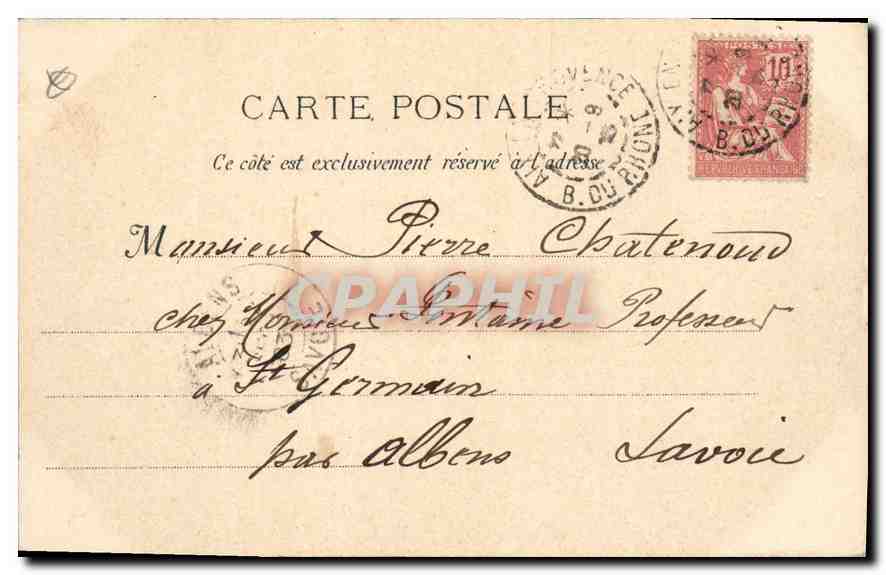 CARTE POSTALE
Ce côté est exclusivement réservé à l'adresse
B. DU RHONE
10
REPUBLIQUE FRANCAISE
B. DU RHONE
Monsieur Pierre Chatenoud
CPAPHIL
chez Monsieur Fontaine Professeur
à St Germain
par Albens Savoie
ALBENS
SAVOIE